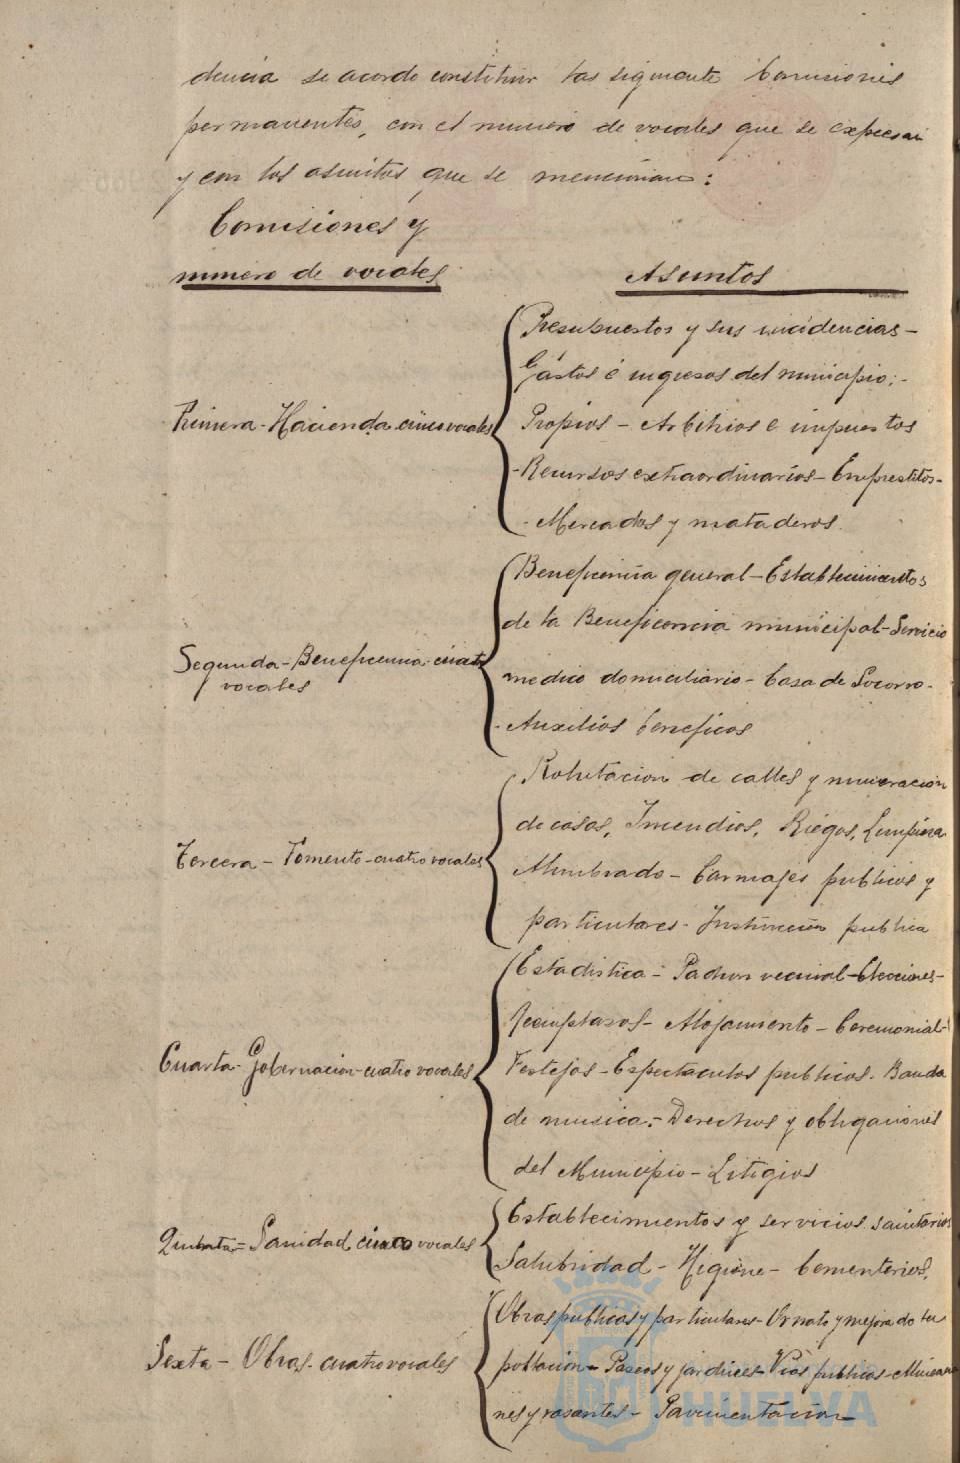 dencia se acordo constituir las siguiente Comisiones
permanentes, con el numero de vocales que se expresan
y con los asuntos que se mencionan:
Comisiones y
numero de vocales
Asuntos
Primera - Hacienda cinco vocales
Presupuestos y sus incidencias -
Gastos é ingresos del municipio; -
Propios - Arbitrios e impuestos
- Recursos extraordinarios - Emprestitos -
- Mercados y mataderos.
Segunda - Beneficencia cuatro
vocales
Beneficencia general - Establecimientos
de la Beneficencia municipal - Servicio
medico domiciliario - Casa de Socorro -
- Auxilios beneficos
Tercera - Fomento - cuatro vocales
Rotulacion de calles y numeracion
de casas, Incendios, Riegos, Limpieza
Alumbrado - Carruajes publicos y
particulares - Instrucción publica
Cuarta - Gobernacion - cuatro vocales
Estadistica - Padron vecinal - Elecciones -
Reemplazos - Alojamiento - Ceremonial -
Festejos - Espectaculos publicos - Banda
de musica - Derechos y obligaciones
del Municipio - Litigios
Quinta - Sanidad cinco vocales
Establecimientos y servicios sanitarios
Salubridad - Higiene - Cementerios.
Sexta - Obras - cuatro vocales
Obras publicas y particulares - Ornato y mejora de la
poblacion - Paseos y jardines - Vias publicas -
nes y rasantes - Pavimentación
HUELVA